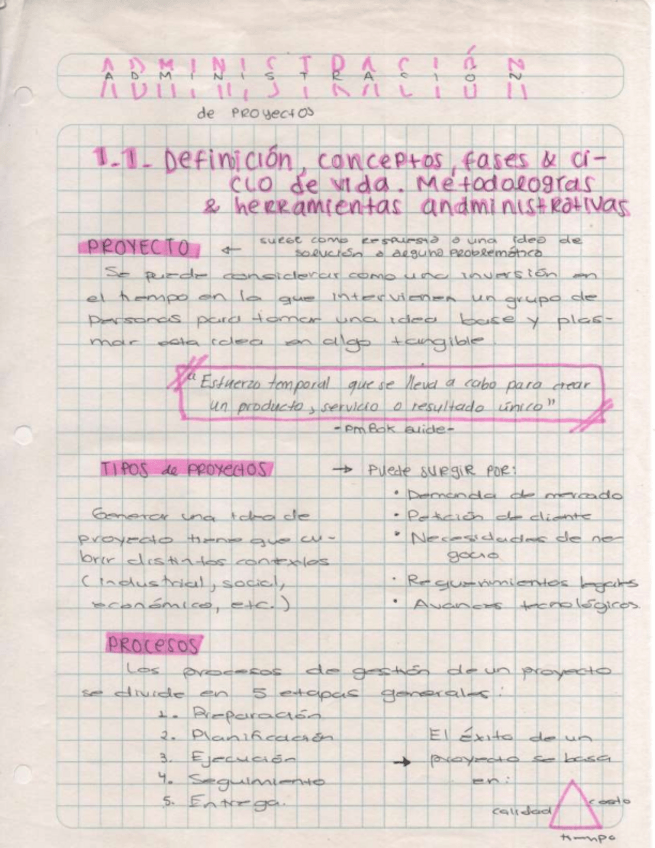 ADMINISTRACIÓN
de PROyectos
1.1- Definición, conceptos, fases & ci-
clo de vida. Metodologías
& herramientas andministrativas
PROYECTO ← surge como respuesta a una idea de
solución a alguna problemática
Se puede considerar como una inversión en
el tiempo en la que intervienen un grupo de
personas para tomar una idea base y plas-
mar esta idea en algo tangible.
"Esfuerzo temporal que se lleva a cabo para crear
un producto, servicio o resultado único"
-PMBok Guide-
TIPOS de PROYECTOS → Puede SURGIR POR:
• Demanda de mercado
Generar una idea de
• Petición de cliente
proyecto tiene que cu-
• Necesidades de ne-
brir distintos contextos
gocio
(industrial, social,
• Requerimientos legales
económico, etc.)
• Avances tecnológicos
PROCESOS
Los procesos de gestión de un proyecto
se divide en 5 etapas generales:
1. Preparación
2. Planificación
El éxito de un
3. Ejecución
→ proyecto se basa
4. Seguimiento
en:
5. Entrega.
calidad
costo
tiempo